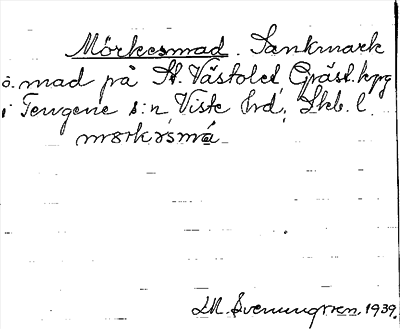 Mörkesmad. Sankmark
o. mad på St. Västolet, Gräst. kpg
i Tengene s:n, Viste hrd, Skb. l.
mörkəsmá
M. Svenungsson. 1939.